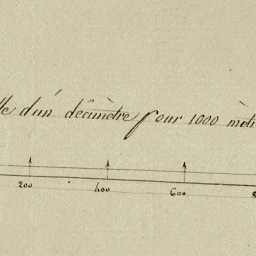 d'un décimètre pour 1000
200 400 600